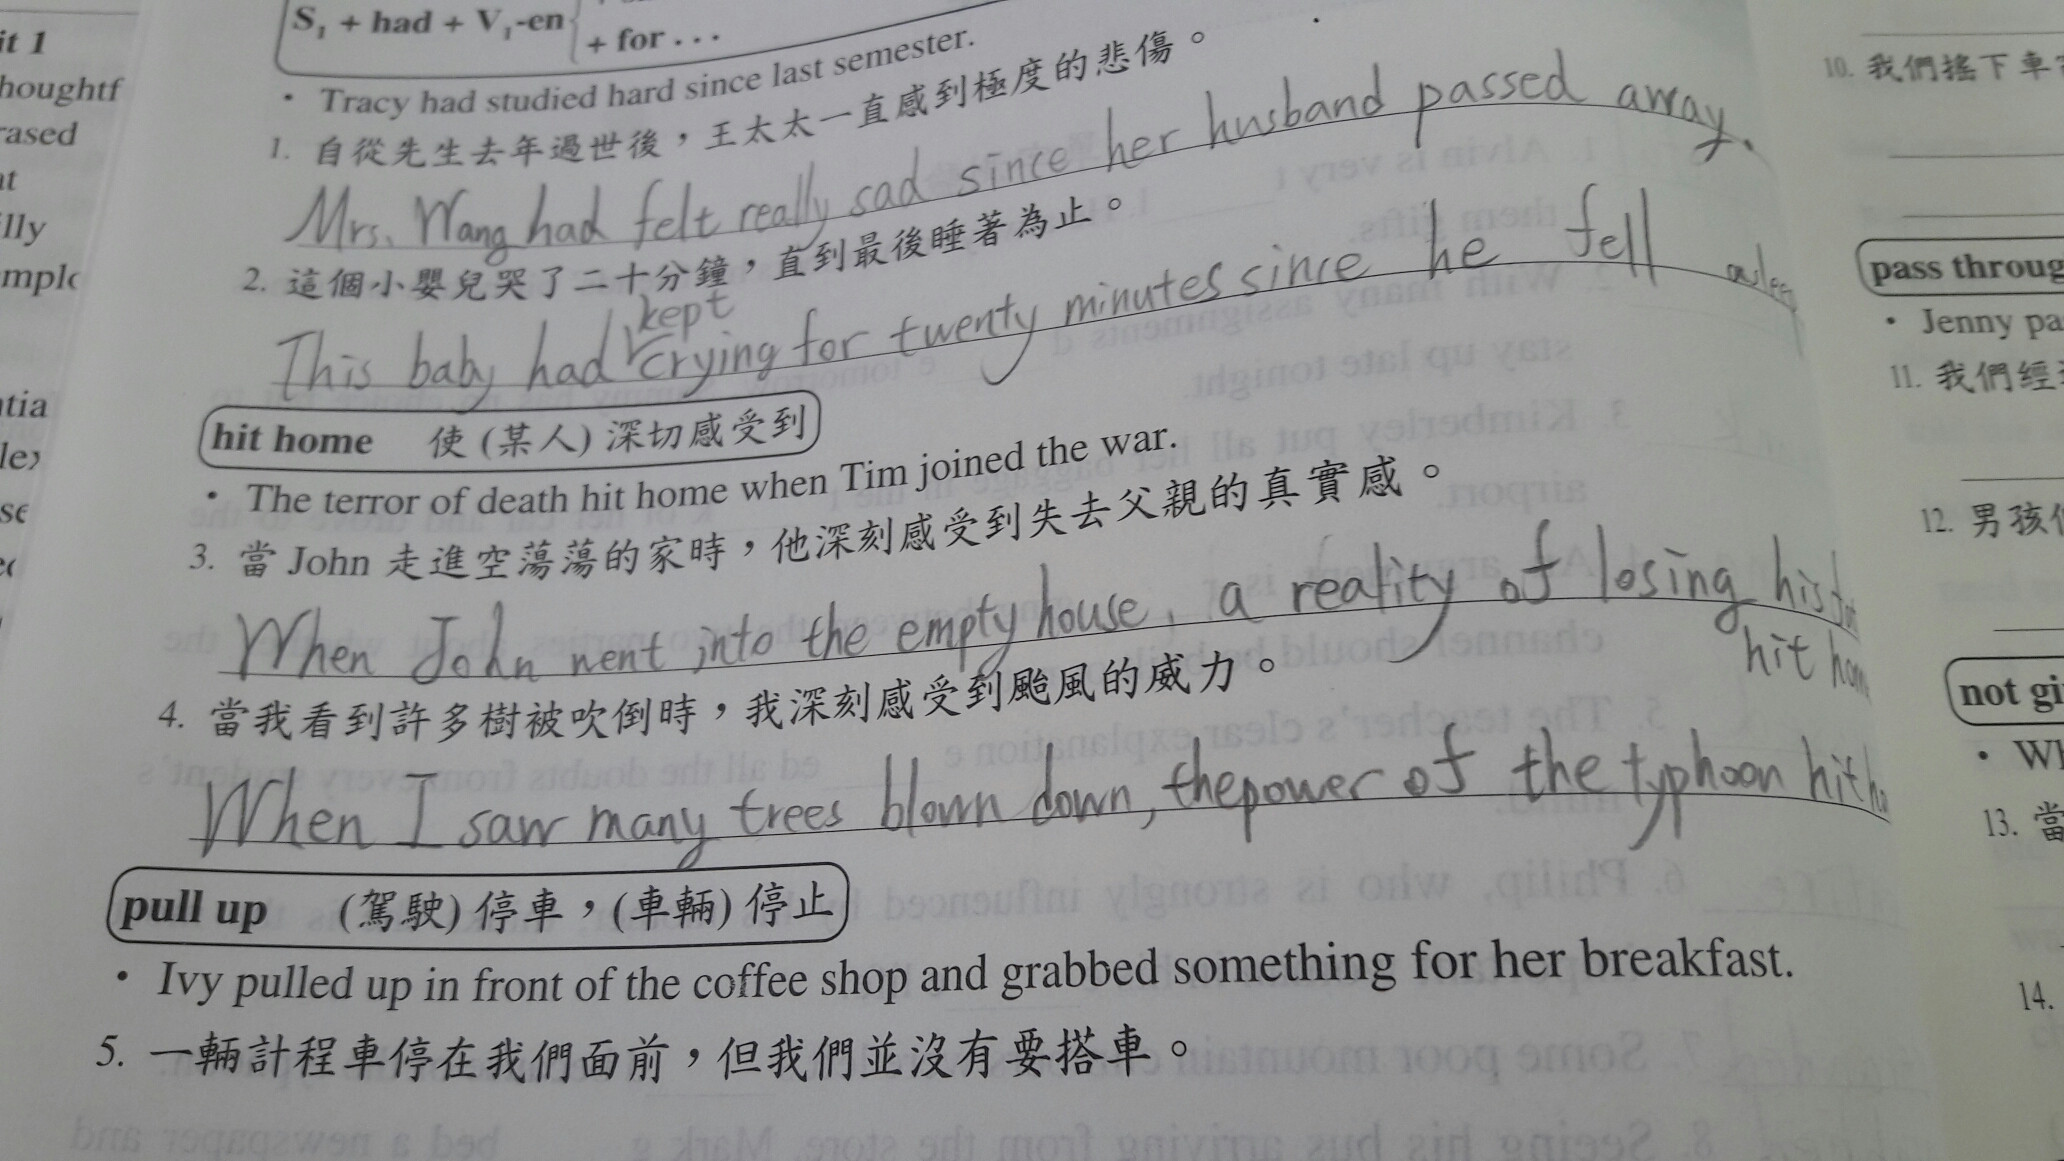 it 1
S₁ + had + V₁-en
+ for . . .
• Tracy had studied hard since last semester.
1. 自從先生去年過世後，王太太一直感到極度的悲傷。
Mrs. Wang had felt really sad since her husband passed away.
2. 這個小嬰兒哭了二十分鐘，直到最後睡著為止。
kept
This baby had crying for twenty minutes since he fell asleep
hit home 使 (某人) 深切感受到
• The terror of death hit home when Tim joined the war.
3. 當 John 走進空蕩蕩的家時，他深刻感受到失去父親的真實感。
When John went into the empty house, a reality of losing his
hit home
4. 當我看到許多樹被吹倒時，我深刻感受到颱風的威力。
When I saw many trees blown down, the power of the typhoon hit
pull up (駕駛) 停車，(車輛) 停止
• Ivy pulled up in front of the coffee shop and grabbed something for her breakfast.
5. 一輛計程車停在我們面前，但我們並沒有要搭車。
houghtf
rased
at
illy
tia
10. 我們搖下車
pass throug
• Jenny pa
11. 我們經
12. 男孩
not gi
• Wh
13. 當
14.